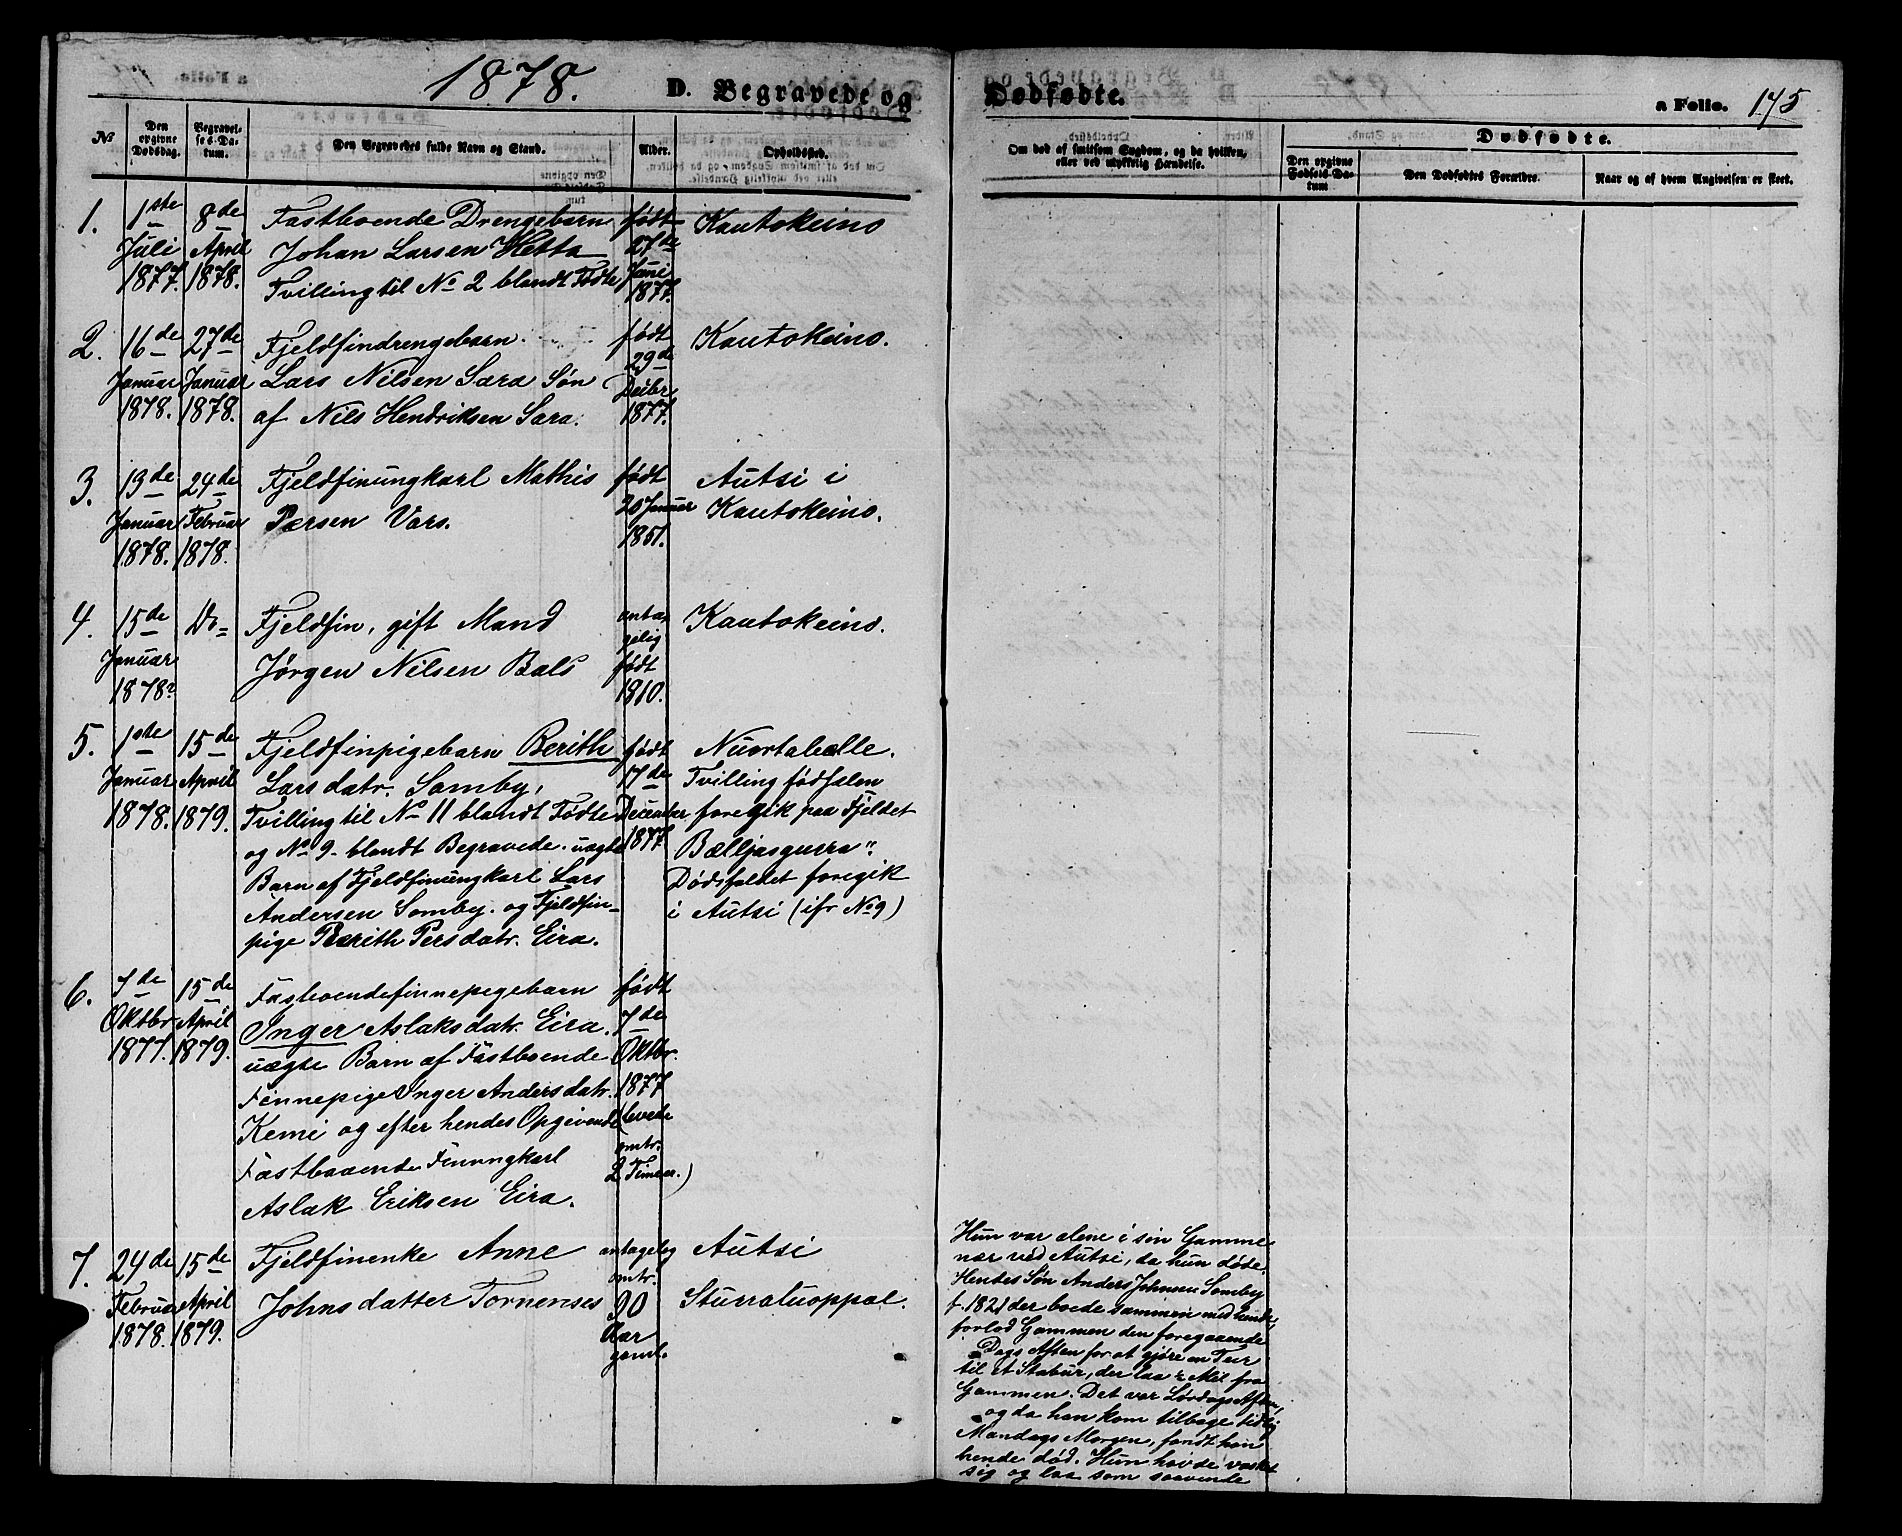 1878.
D. Begravede og
Dødfødte.
a Folio. 175
No
Den opgivne Dødsdag.
Begravelses-Datum.
Den Begravedes fulde Navn og Stand.
Alder.
Opholdssted.
Om død af smitsom Sygdom, og da hvilken, eller ved ulykkelig Hændelse.
Dødfødte.
Den opgivne Fødsels-Datum
Den Dødfødtes Forældre.
Naar og af hvem Angivelsen er skeet.
1. 1ste 8de Fastboende Drengebarn født Kautokeino
Juli April Johan Larsen Hetta 27de
1877. 1878. Tvilling til No 2 blandt Fødte Juni
1877.
2. 16de 27de Fjeldfindrengebarn. født Kautokeino.
Januar Januar Lars Nilsen Sara Søn 29de
1878. 1878. af Nils Hendriksen Sara. Decbr
1877.
3. 13de 24de Fjeldfinungkarl Mathis født Autsi i
Januar Februar Persen Vars. 20 Januar Kautokeino.
1878. 1878. 1851.
4. 15de Do= Fjeldfin, gift Mand anta- Kautokeino.
Januar Jørgen Nilsen Bals gelig
1878? født
1810.
5. 1ste 15de Fjeldfinpigebarn Berith født Nuortabælle.
Januar April Larsdatr. Somby, 17de Tvillingfødselen
1878. 1879. Tvilling til No 11 blandt Fødte December foregik paa Fjeldet
og No 9 blandt Begravede. uægte 1877 Bælljasgurra".
Barn af Fjeldfinungkarl Lars Dødsfaldet foregik
Andersen Somby. og Fjeldfin- i Autsi (ifr No 9)
pige Berith Persdatr. Eira.
6. 7de 15de Fastboendefinnepigebarn født
Oktbr April Inger Aslaksdatr. Eira. 7de
1877. 1879. uægte Barn af Fastboende Oktbr.
Finnepige Inger Andersdatr. 1877
Kemi og efter hendes Opgivende (levede
Fastboende Finungkarl omtr.
Aslak Eriksen Eira. 2 Timer.)
7. 24de 15de Fjeldfinenke Anne antagelig Autsi
Februar April Johnsdatter Tornensis omtr. Sturraluoppal.
1878. 1879. 90
Aar
gaml.
Hun var alene i sin Gamme
nær ved Autsi, da hun døde.
Hendes Søn Anders Johnsen Somby
f. 1821 der boede sammen med hende,
forlod Gammen den foregaaende
Dags Aften for at gjøre en Tur
til et Stabur, der laa Mil fra
Gammen. Det var Lørdags Aften,
og da han kom tilbage tidlig
Mandags Morgen, fandt han
hende død. Hun havde vasket
sig og laa som sovende